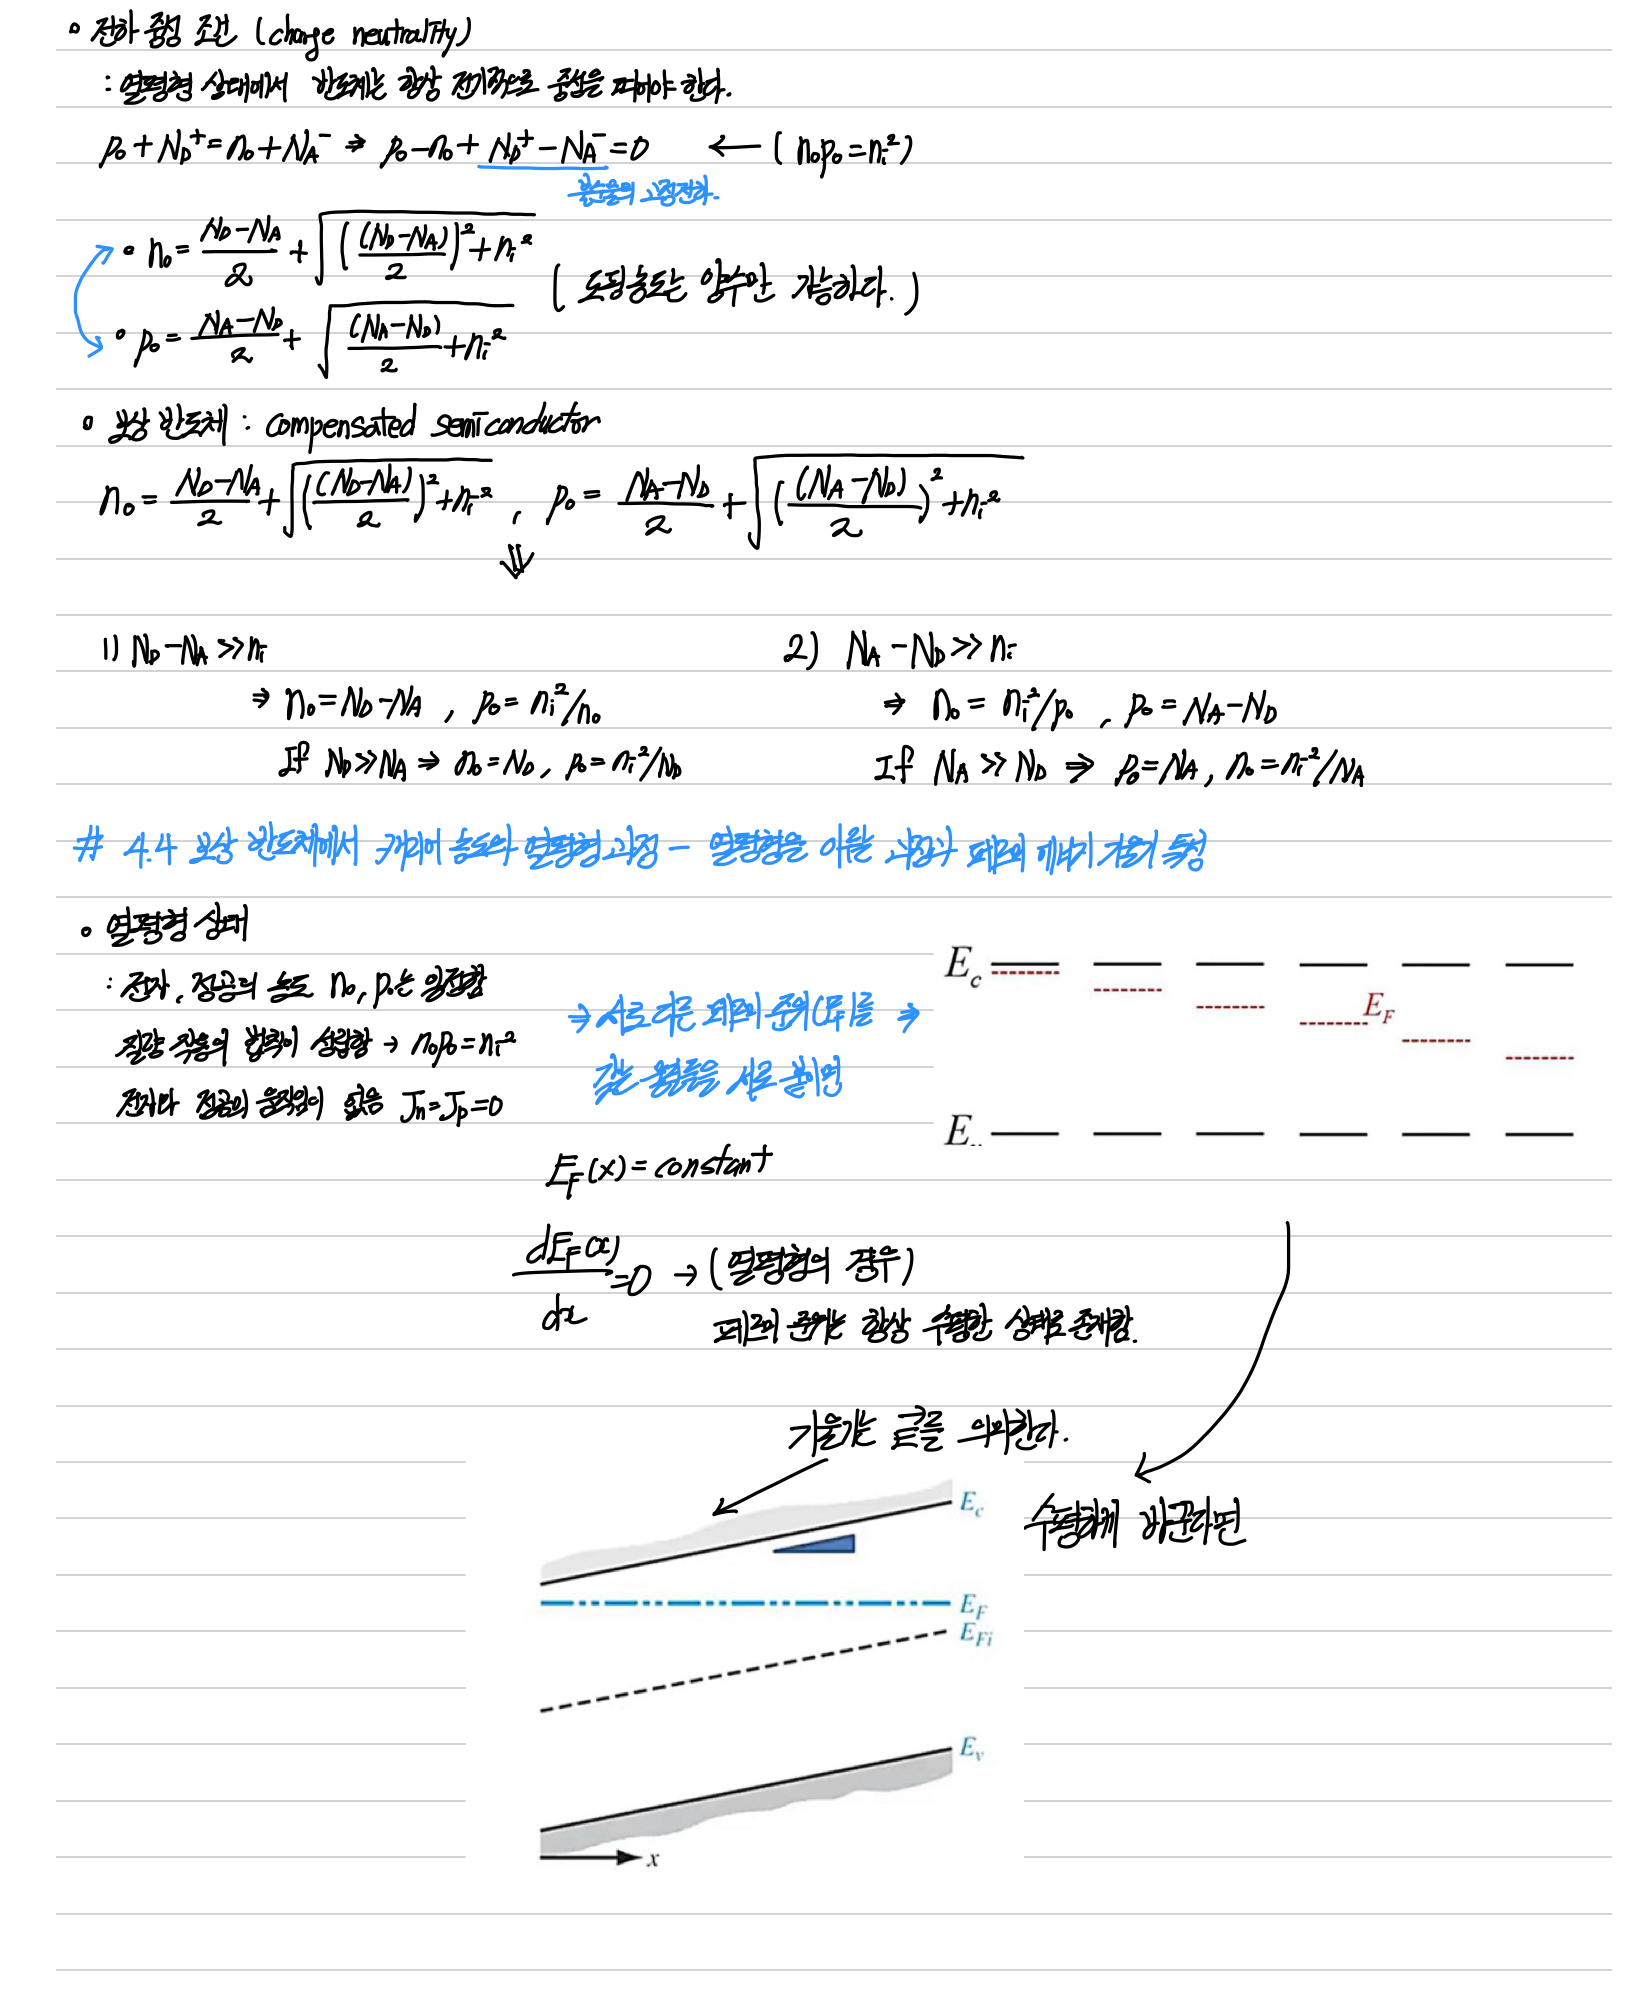 • 전하 중성 조건 (charge neutrality)
: 열평형 상태에서 반도체는 항상 전기적으로 중성을 띄어야 한다.
p₀ + N_D⁺ = n₀ + N_A⁻ ⇒ p₀ - n₀ + N_D⁺ - N_A⁻ = 0 ← ( n₀p₀ = n_i² )
불순물의 고정전하.
• n₀ = (N_D - N_A)/2 + √( ((N_D - N_A)/2)² + n_i² )
( 도핑농도는 양수만 가능하다. )
• p₀ = (N_A - N_D)/2 + √( (N_A - N_D)/2 + n_i² )
• 보상 반도체 : compensated semiconductor
n₀ = (N_D - N_A)/2 + √( ((N_D - N_A)/2)² + n_i² ) , p₀ = (N_A - N_D)/2 + √( ((N_A - N_D)/2)² + n_i² )
⇓
1) N_D - N_A >> n_i
⇒ n₀ = N_D - N_A , p₀ = n_i²/n₀
If N_D >> N_A ⇒ n₀ = N_D, p₀ = n_i²/N_D
2) N_A - N_D >> n_i
⇒ n₀ = n_i²/p₀ , p₀ = N_A - N_D
If N_A >> N_D ⇒ p₀ = N_A, n₀ = n_i²/N_A
# 4.4 보상 반도체에서 캐리어 농도와 열평형 과정 - 열평형을 이룰 과정과 페르미 에너지 기울기 특성
• 열평형 상태
: 전자, 정공의 농도 n₀, p₀는 일정함
질량 작용의 법칙이 성립함 → n₀p₀ = n_i²
전자나 정공의 움직임이 없음 J_n = J_p = 0
⇒ 서로 다른 페르미 준위(E_F)를 ⇒
갖는 물질들을 서로 붙이면
E_c
E_F
E_v
E_F(x) = constant
dE_F(x)/dx = 0 → (열평형의 경우)
페르미 준위는 항상 수평한 상태로 존재함.
기울기는 E를 의미한다.
수평하게 바꾼다면
E_c
E_F
E_Fi
E_v
x